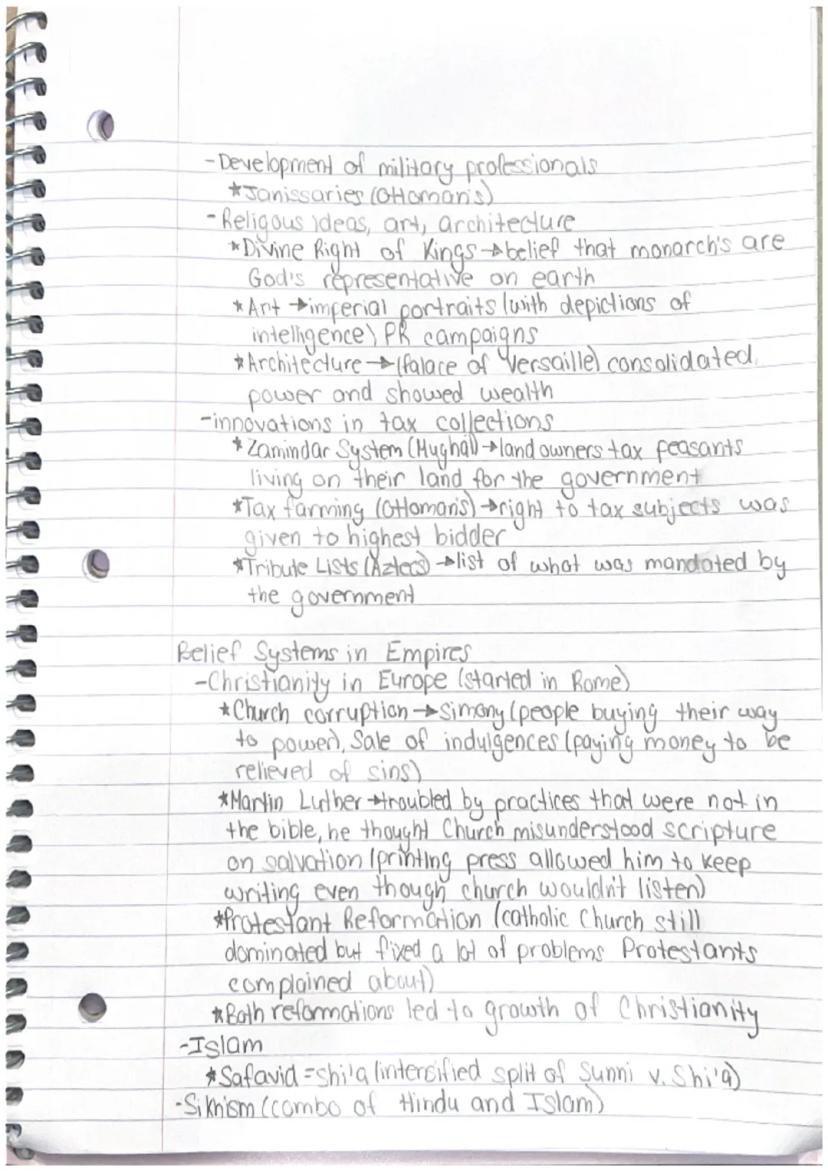 -Development of military professionals
*Janissaries (Ottomans)
-Religous ideas, art, architecture
*Divine Right of Kings→belief that monarch's are
God's representative on earth
*Art →imperial portraits (with depictions of
intelligence) PR campaigns
*Architecture→(Palace of Versaille) consolidated
power and showed wealth
-innovations in tax collections
*Zamindar System (Mughal)→land owners tax peasants
living on their land for the government
*Tax farming (Ottomans)→right to tax subjects was
given to highest bidder
*Tribute Lists (Aztecs)→list of what was mandated by
the government
Belief Systems in Empires
-Christianity in Europe (started in Rome)
*Church corruption→Simony (people buying their way
to power), Sale of indulgences (paying money to be
relieved of sins)
*Martin Luther→troubled by practices that were not in
the bible, he thought Church misunderstood scripture
on salvation (printing press allowed him to keep
writing even though church wouldn't listen)
*Protestant Reformation (catholic Church still
dominated but fixed a lot of problems Protestants
complained about)
*Both reformations led to growth of Christianity
-Islam
*Safavid = Shi'a (intersified split of Sunni v. Shi'a)
-Sikhism (combo of Hindu and Islam)